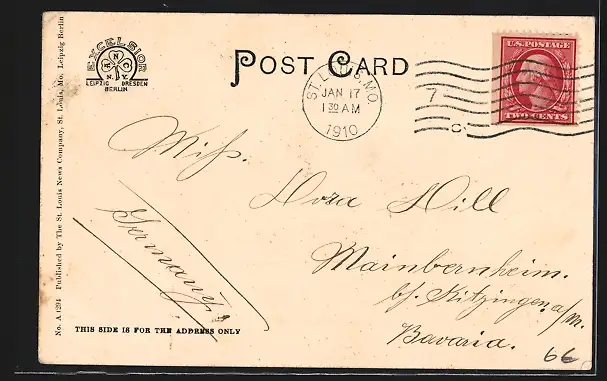 EXCELSIOR
N
N C
N.Y.
LEIPZIG DRESDEN
BERLIN
POST CARD
ST. LOUIS, MO.
JAN 17
1 30 AM
1910
7
C.
U.S. POSTAGE
TWO CENTS
No. A 1294 Published by The St. Louis News Company, St. Louis, Mo. Leipzig Berlin
Miss.
Dora Hill
Mainbernheim.
bf. Kitzingen a/m.
Bavaria.
Germany.
THIS SIDE IS FOR THE ADDRESS ONLY
66